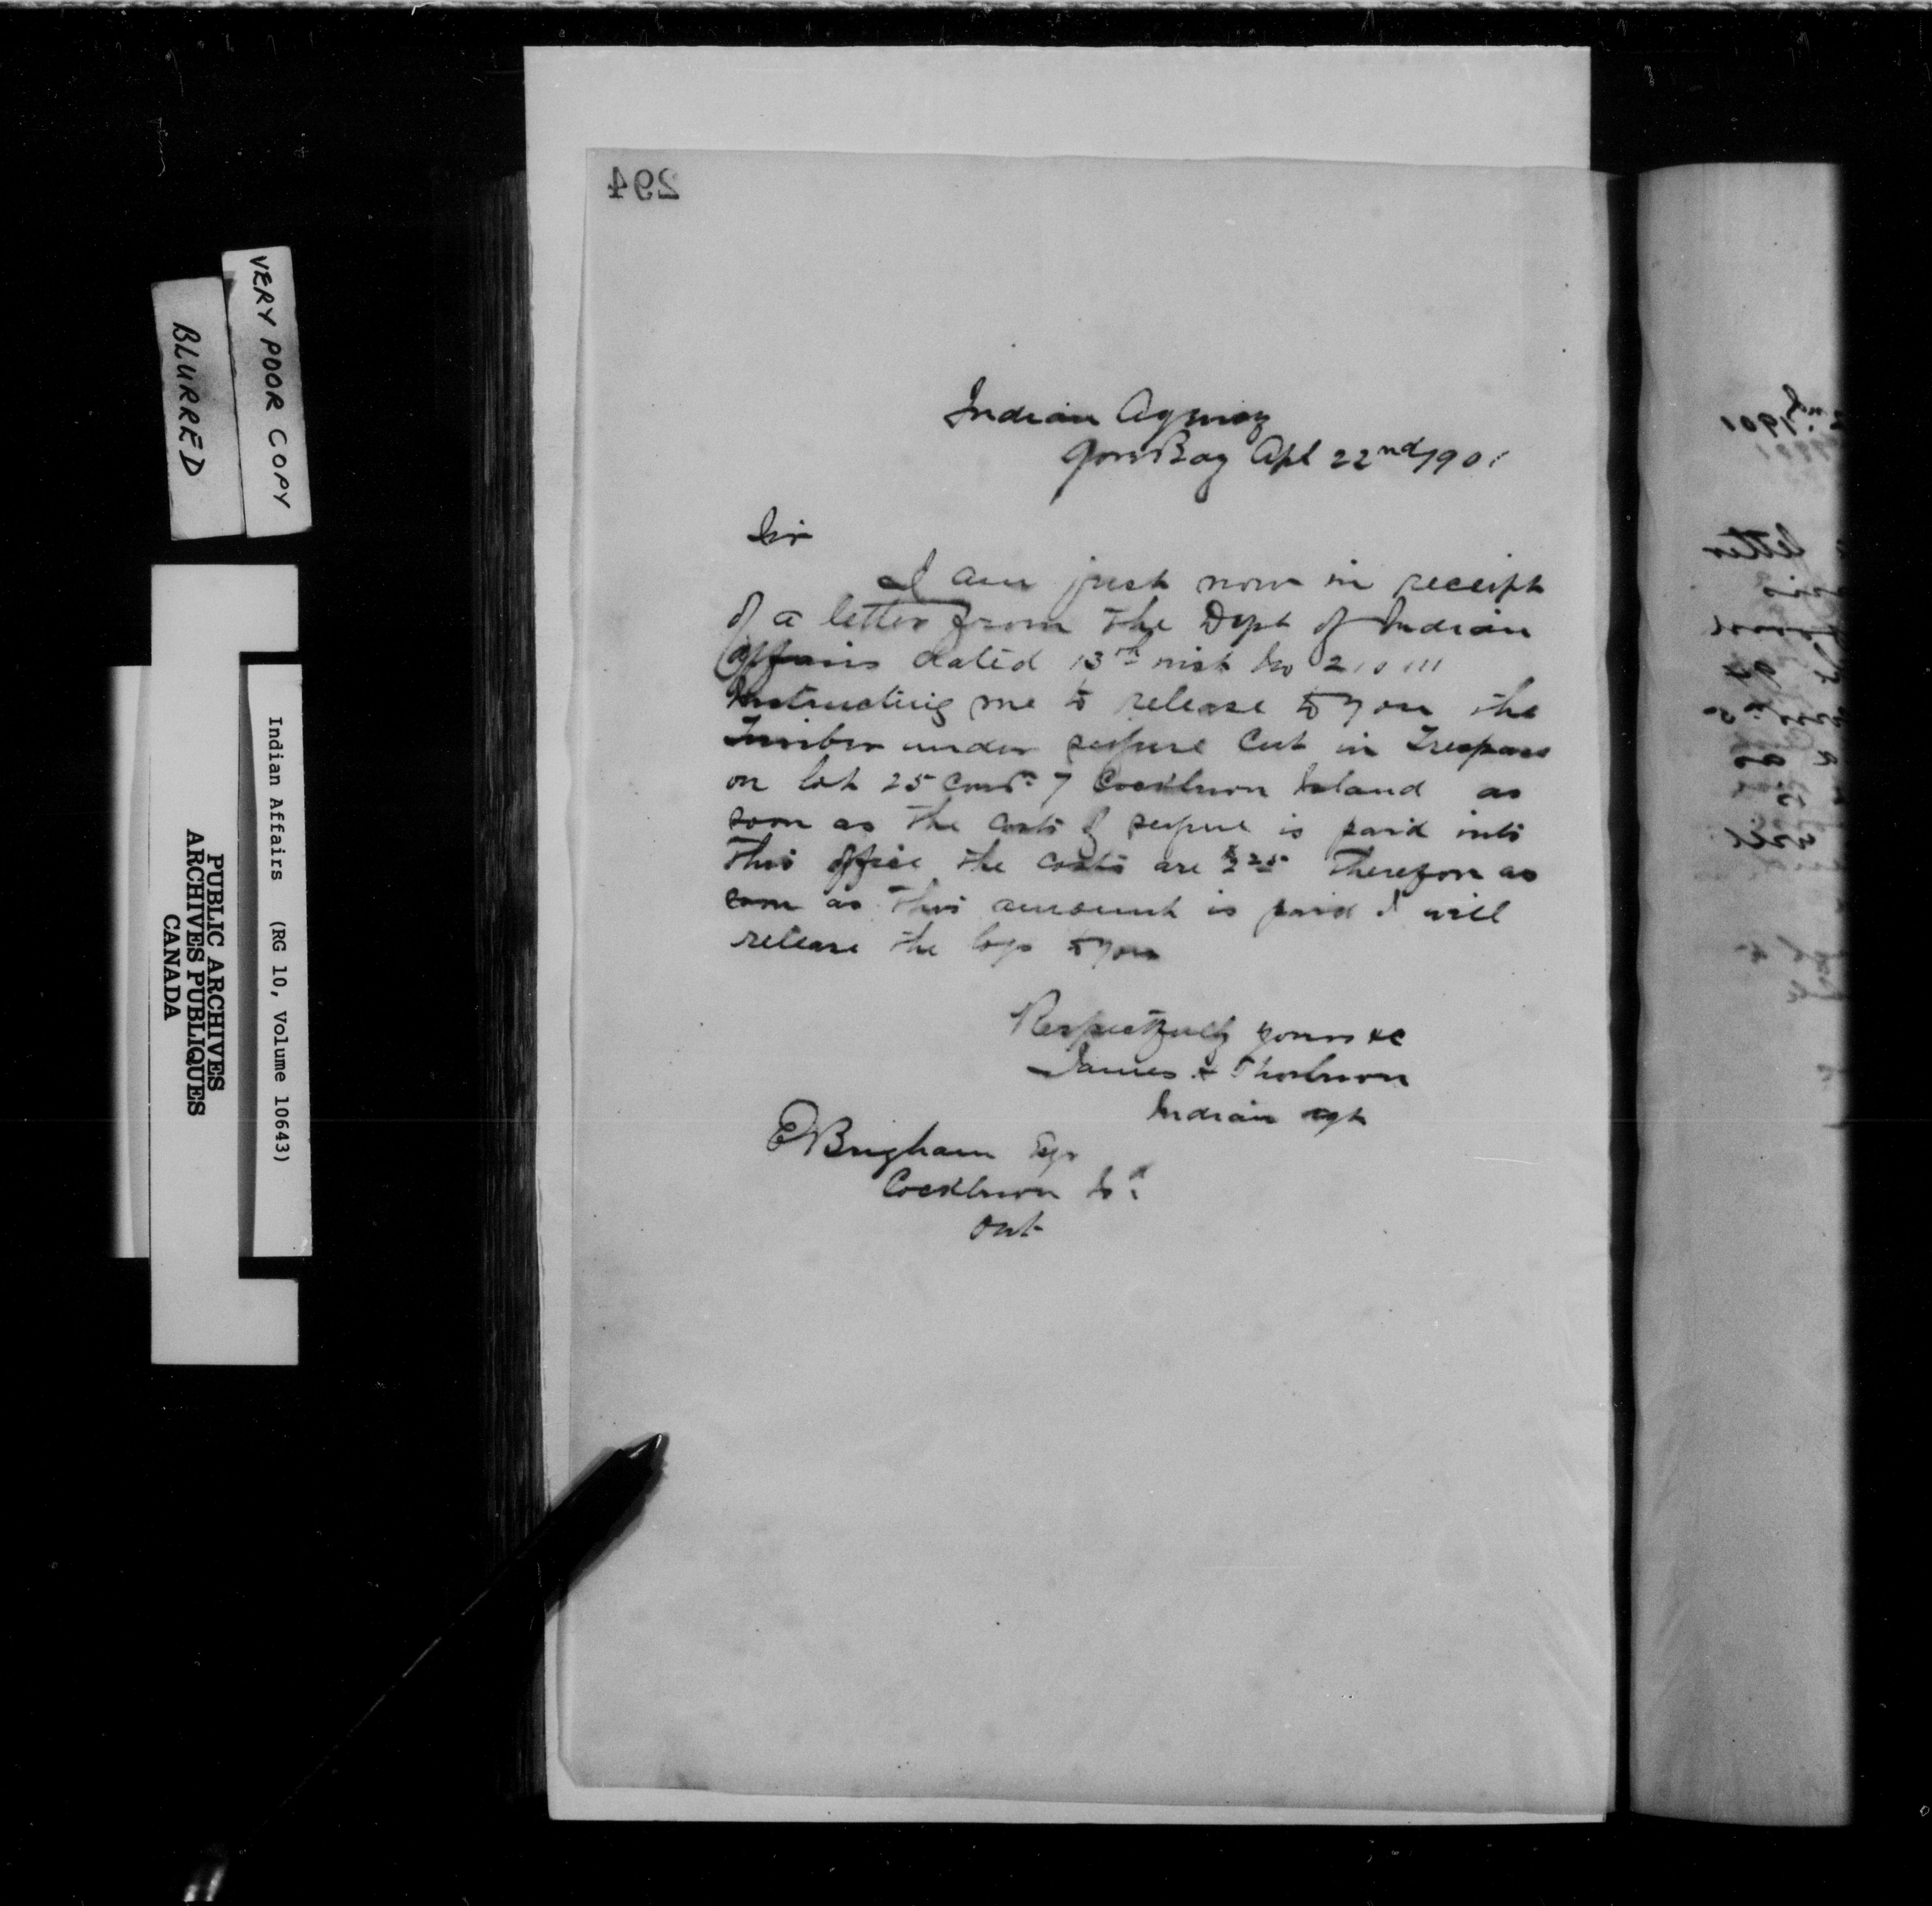 294
Indian Agency
Gore Bay Apl 22nd 1901
Sir
I am just now in receipt
of a letter from the Dept of Indian
Affairs dated 13th inst No
Instructing me to release to you the
Timber under seizure Cut in Trespass
on lot 25 Con 7 Cockburn Island as
soon as the costs of seizure is paid into
this office the costs are Therefore as
soon as this amount is paid I will
release the logs to you
Respectfully yours &c
James Thorburn
Indian Agt
E Brigham Esqr
Cockburn Isd
Ont
VERY POOR COPY
BLURRED
Indian Affairs (RG 10, Volume 10643)
PUBLIC ARCHIVES
ARCHIVES PUBLIQUES
CANADA
1901
letter